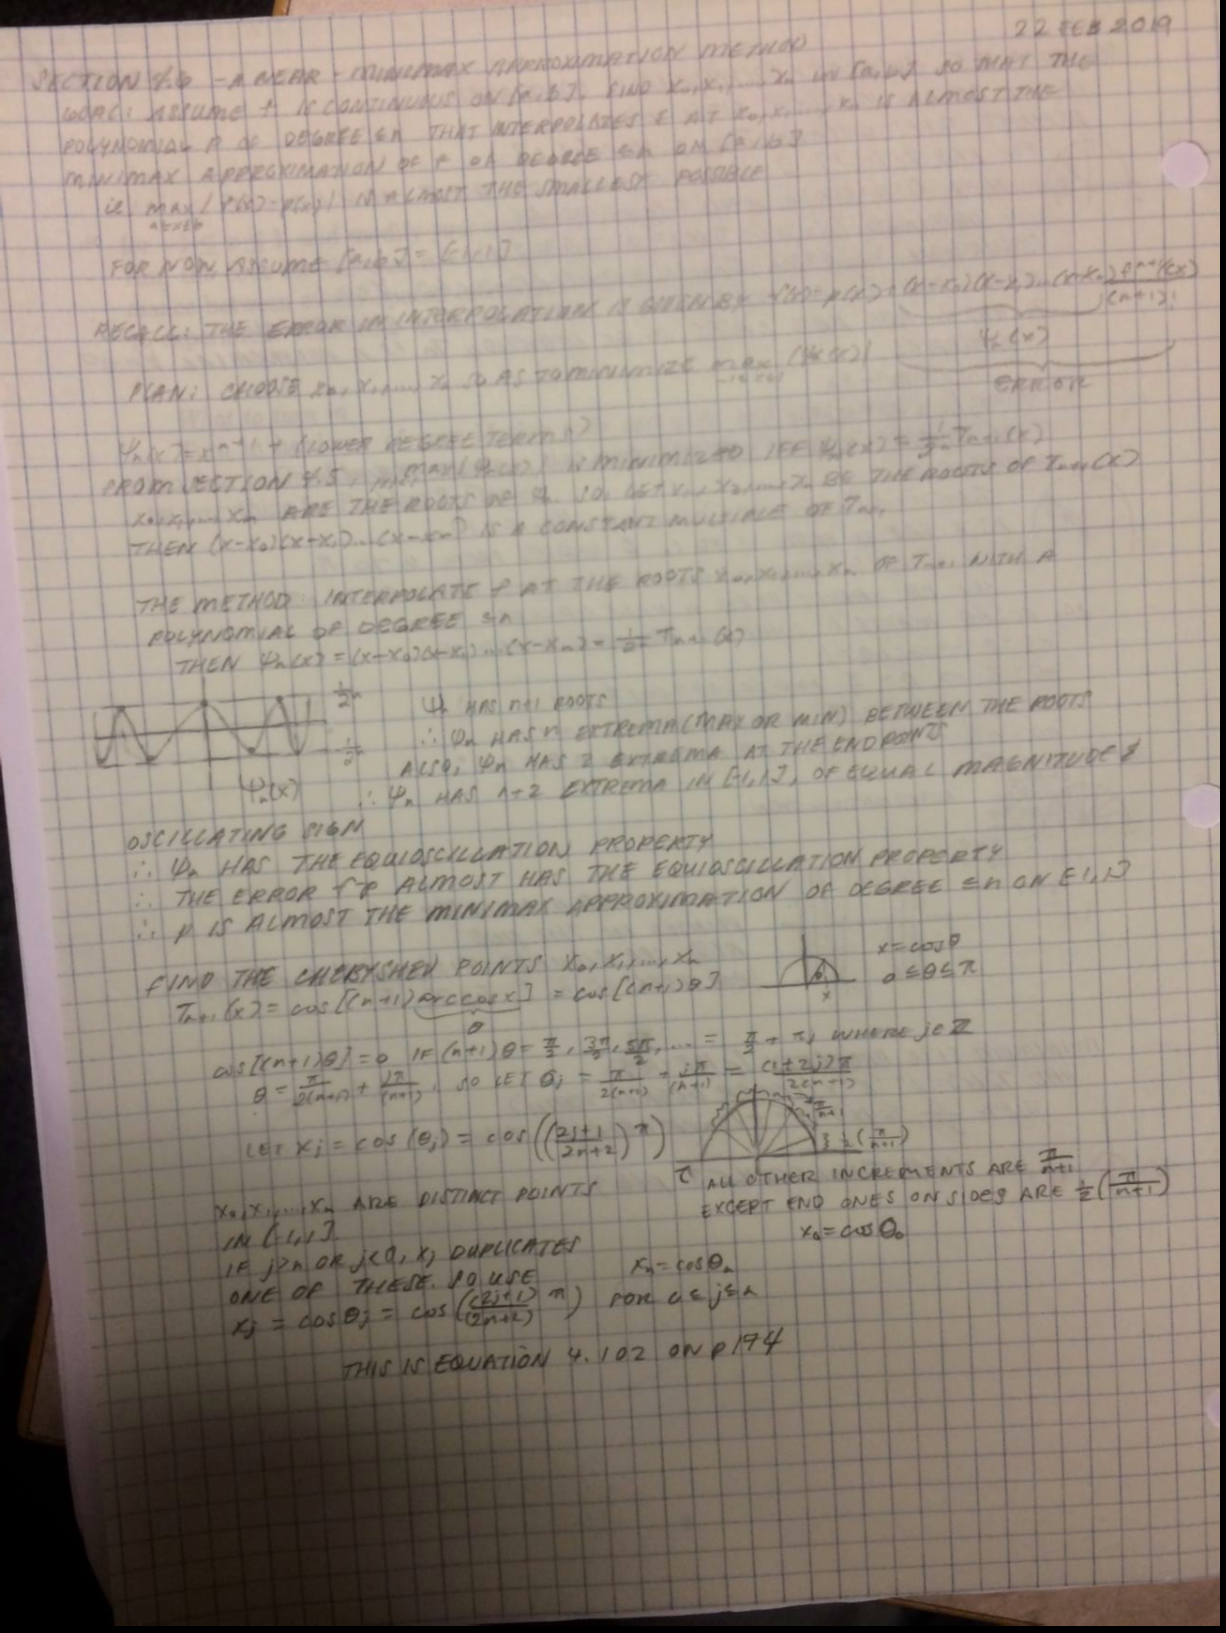 22 FEB 2019
SECTION 4.6 - A NEAR-MINIMAX APPROXIMATION METHOD
GOAL: ASSUME f IS CONTINUOUS ON [a,b]. FIND x₀,x₁,...,xₙ IN [a,b] SO THAT THE
POLYNOMIAL P OF DEGREE ≤n THAT INTERPOLATES f AT x₀,x₁,...,xₙ IS ALMOST THE
MINIMAX APPROXIMATION OF f OF DEGREE ≤n ON [a,b]
ie max a≤x≤b |f(x)-p(x)| IS ALMOST THE SMALLEST POSSIBLE
FOR NOW ASSUME [a,b] = [-1,1]
RECALL: THE ERROR IN INTERPOLATION IS GIVEN BY f(x)-p(x) = (x-x₀)(x-x₁)...(x-xₙ) fⁿ⁺¹(cx)/(n+1)!
Ψₙ(x)
ERROR
PLAN: CHOOSE x₀,x₁,...,xₙ SO AS TO MINIMIZE max -1≤x≤1 |Ψₙ(x)|
Ψₙ(x)=xⁿ⁺¹ + (LOWER DEGREE TERMS)
FROM SECTION 4.5, max |Ψₙ(x)| IS MINIMIZED IFF Ψₙ(x) = 1/2ⁿ Tₙ₊₁(x)
x₀,x₁,...,xₙ ARE THE ROOTS OF Ψₙ SO, LET x₀,x₁,...,xₙ BE THE ROOTS OF Tₙ₊₁(x)
THEN (x-x₀)(x-x₁)...(x-xₙ) IS A CONSTANT MULTIPLE OF Tₙ₊₁
THE METHOD: INTERPOLATE f AT THE ROOTS x₀,x₁,...,xₙ OF Tₙ₊₁ WITH A
POLYNOMIAL OF DEGREE ≤n
THEN Ψₙ(x) = (x-x₀)(x-x₁)...(x-xₙ) = 1/2ⁿ Tₙ₊₁(x)
1/2ⁿ
Ψₙ HAS n+1 ROOTS
∴ Ψₙ HAS n EXTREMA (MAX OR MIN) BETWEEN THE ROOTS
ALSO, Ψₙ HAS 2 EXTREMA AT THE ENDPOINTS
Ψₙ(x)
∴ Ψₙ HAS n+2 EXTREMA IN [-1,1], OF EQUAL MAGNITUDE &
OSCILLATING SIGN
∴ Ψₙ HAS THE EQUIOSCILLATION PROPERTY
∴ THE ERROR f-p ALMOST HAS THE EQUIOSCILLATION PROPERTY
∴ p IS ALMOST THE MINIMAX APPROXIMATION OF DEGREE ≤n ON [-1,1]
FIND THE CHEBYSHEV POINTS x₀,x₁,...,xₙ
Tₙ₊₁(x) = cos[(n+1) arccosx] = cos[(n+1)θ]
θ
θ
x
x=cosθ
0≤θ≤π
cos[(n+1)θ]=0 IF (n+1)θ = π/2, 3π/2, 5π/2, ... = π/2 + πj WHERE j∈ℤ
θ = π/2(n+1) + jπ/(n+1), SO LET θj = π/2(n+1) + jπ/(n+1) = (1+2j)π/2(n+1)
π/n+1
LET xj = cos(θj) = cos((2j+1/2n+2)π)
½(π/n+1)
ALL OTHER INCREMENTS ARE π/n+1
EXCEPT END ONES ON SIDES ARE ½(π/n+1)
x₀=cosθ₀
xₙ=cosθₙ
x₀,x₁,...,xₙ ARE DISTINCT POINTS
IN [-1,1].
IF j>n OR j<0, xj DUPLICATES
ONE OF THESE. SO USE
xj = cosθj = cos((2j+1)/(2n+2) π) FOR 0≤j≤n
THIS IS EQUATION 4.102 ON p194